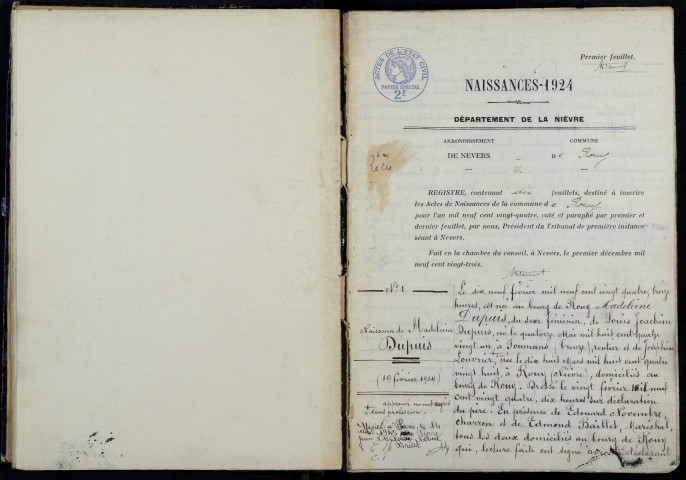 Premier feuillet.
ACTES DE L'ÉTAT CIVIL
PAPIER SPÉCIAL
2F
NAISSANCES-1924
DÉPARTEMENT DE LA NIÈVRE
ARRONDISSEMENT
DE NEVERS
COMMUNE
DE Rouy
REGISTRE, contenant dix feuillets, destiné à inscrire
les Actes de Naissances de la commune de Rouy
pour l'an mil neuf cent vingt-quatre, coté et paraphé par premier et
dernier feuillet, par nous, Président du Tribunal de première instance
séant à Nevers.
Fait en la chambre du conseil, à Nevers, le premier décembre mil
neuf cent vingt-trois.
N° 1
Naissance de Madeleine
Dupuis
(19 février 1924)
Le dix neuf février mil neuf cent vingt quatre, treize
heures, est née au bourg de Rouy Madeleine
Dupuis, du sexe féminin, de Louis Joachim
Dupuis, né le quatorze Mai mil huit cent quatre
vingt un, à Soumans (Creuze), rentier et de Joséphine
Louvrier, née le dix huit Mars mil huit cent quatre
vingt huit, à Rouy (Nièvre), domiciliés au
bourg de Rouy. Dressé le vingt février mil neuf
cent vingt quatre, dix heures sur déclaration
du père. En présence de Edouard Novembre,
charron et de Edmond Baillet, Maréchal,
tous les deux domiciliés au bourg de Rouy
qui, lecture faite ont signé avec le déclarant